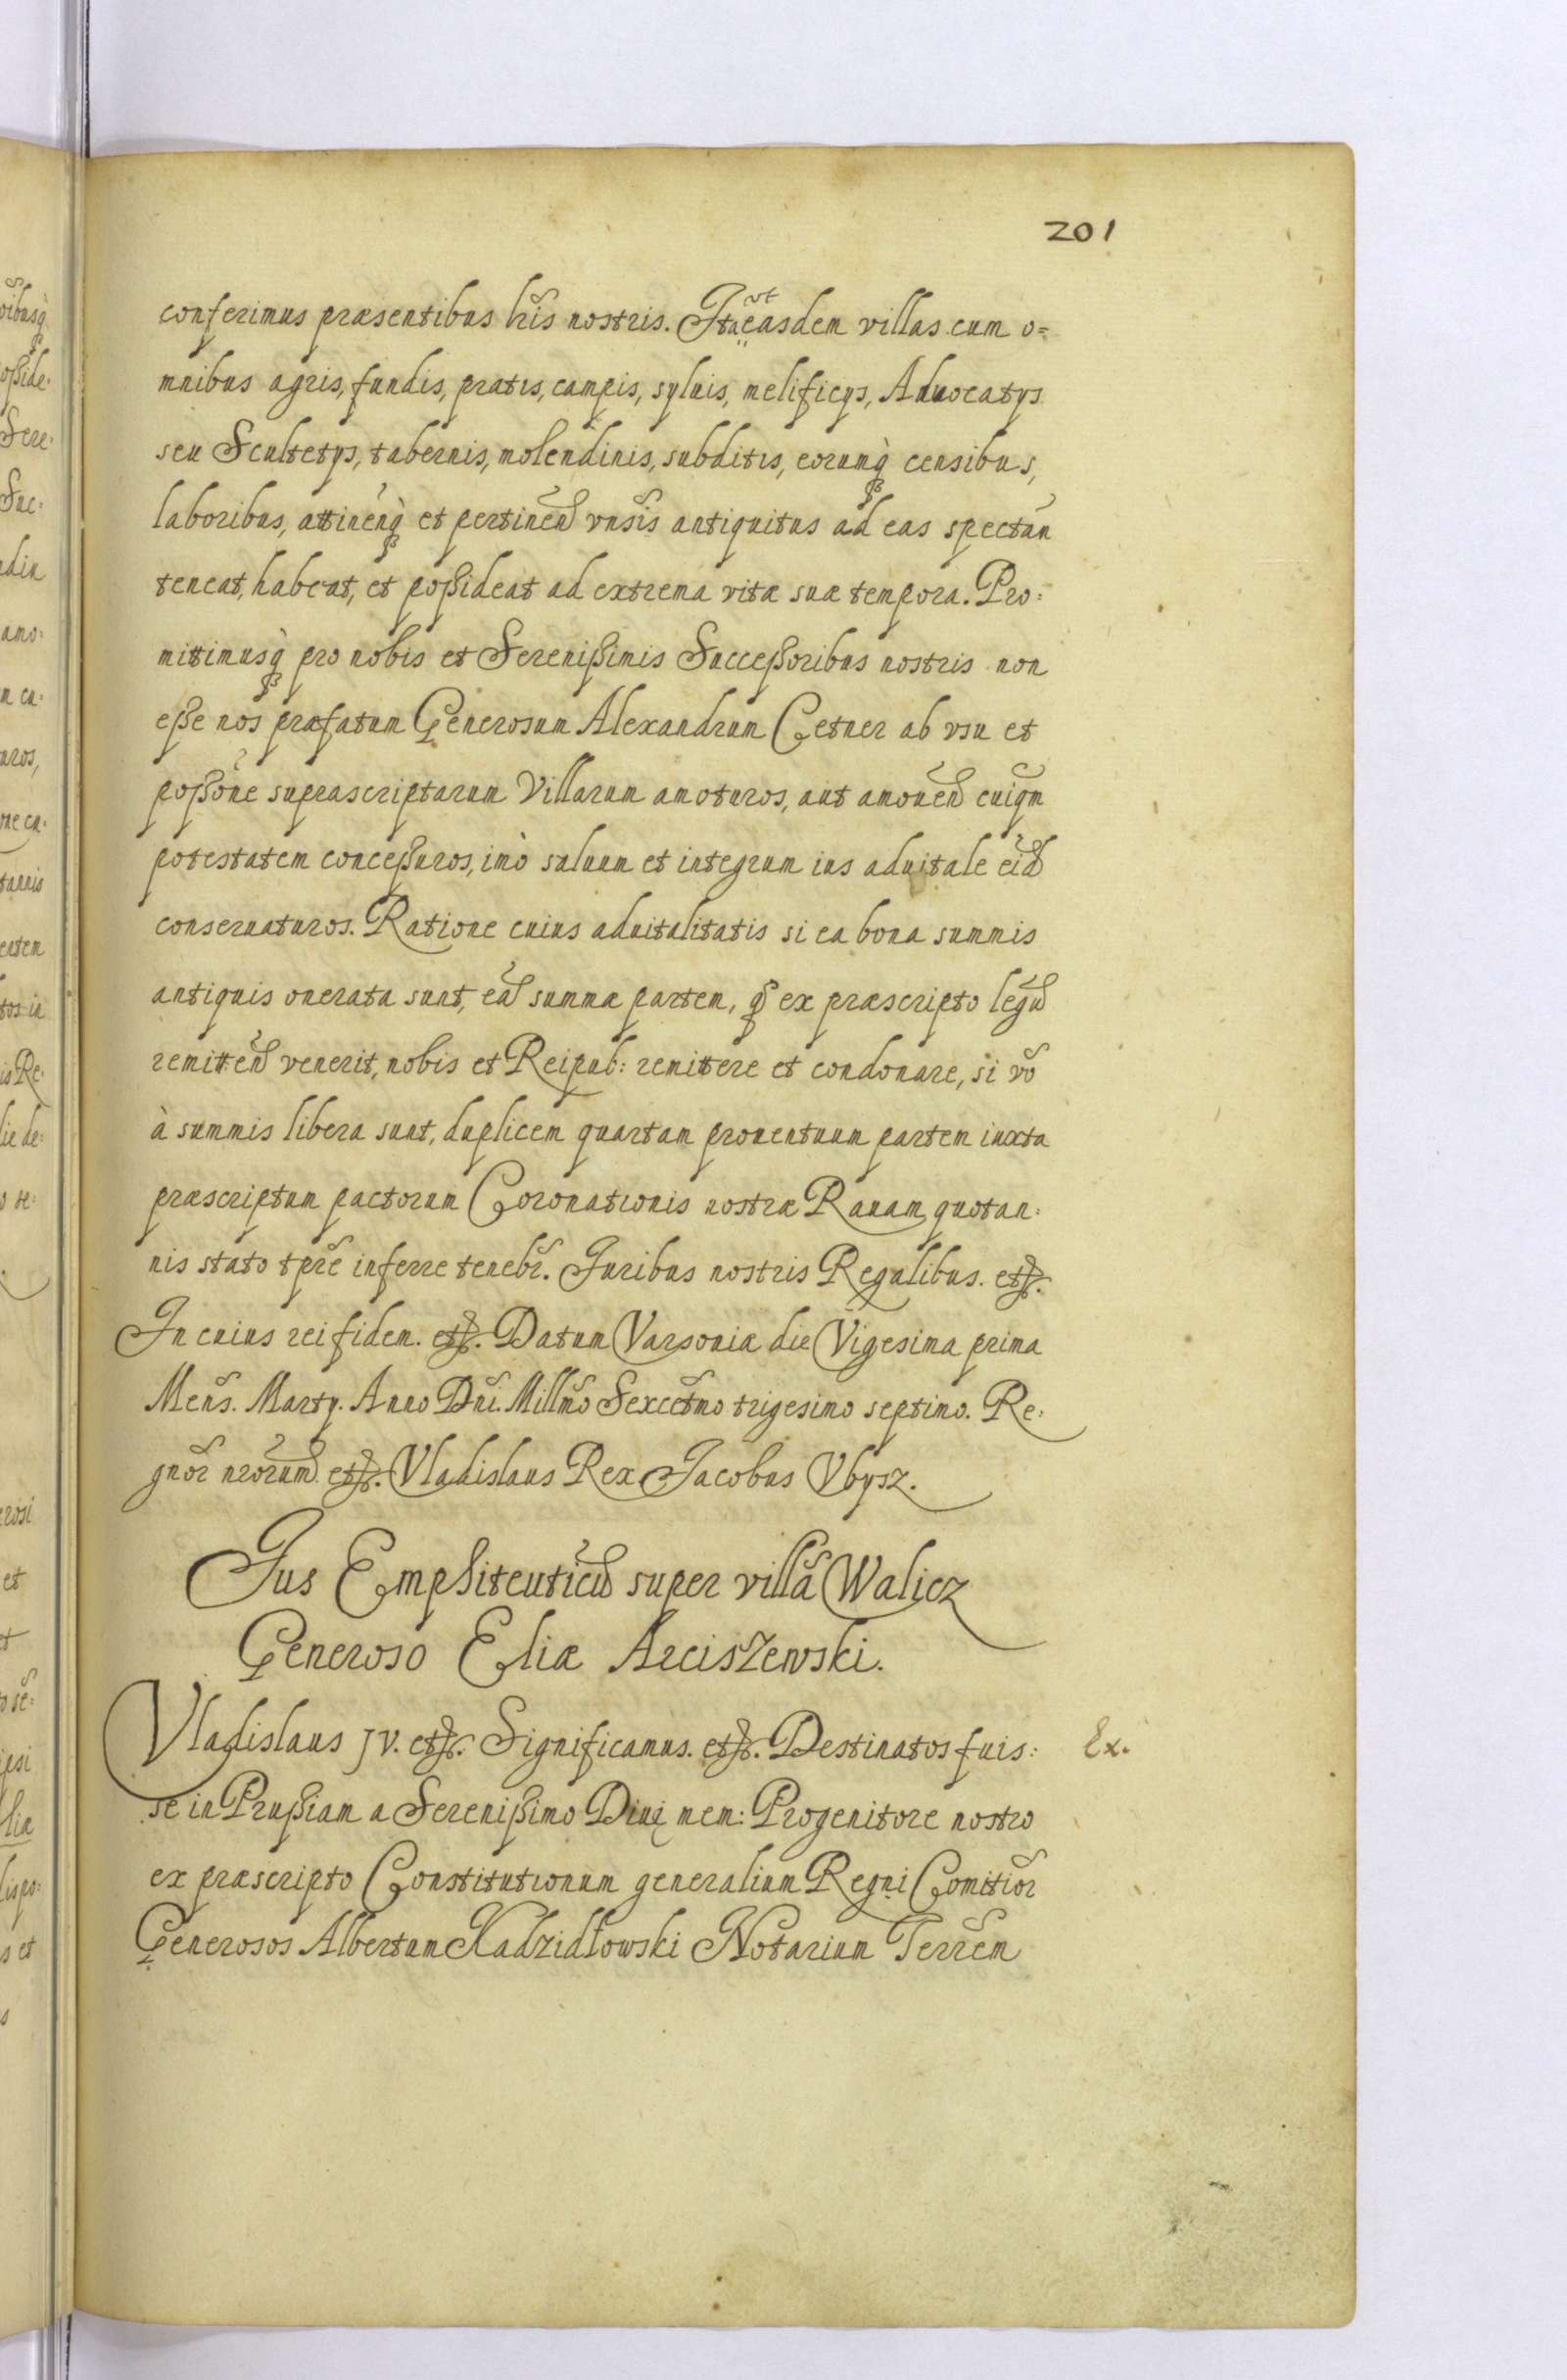 201
conferimus præsentibus lr̃is nostris. Ita ut easdem villas cum o=
mnibus agris, fundis, pratis, campis, syluis, melificys, Aduocatys
seu Scultetys, tabernis, molendinis, subditis, eorumq̀ censibus,
laboribus, attineñq̀ et pertineñ vnĩsis antiquitus ad eas spectañ
teneat, habeat, et poßideat ad extrema vitæ suæ tempora. Pro:
mittimusq̀ pro nobis et Serenißimis Succeßoribus nostris non
eße nos præfatum Generosum Alexandrum Cetner ab vsu et
poßõne suprascriptarum Villarum amoturos, aut amoueñ cuiqm̃
potestatem conceßuros, imò saluum et integrum ius aduitale eid̃
conseruaturos. Ratione cuius aduitalitatis si ea bona summis
antiquis onerata sunt, eã summæ partem, q̃ ex præscripto legũ
remitteñ venerit, nobis et Reipub: remittere et condonare, si võ
à summis libera sunt, duplicem quartam prouentuum partem iuxta
præscriptum pactorum Coronationis nostræ Rauam quotan:
nis stato tpr̃e inferre tenebr̃. Iuribus nostris Regalibus. etc.
In cuius rei fidem. etc. Datum Varsouiæ die Vigesima prima
Meñs. Marty. Anno Dñi. Millm̃o Sexcẽtmo trigesimo septimo. Re:
gnor̃ nr̃orum. etc. Vladislaus Rex Jacobus Vbysz.
Jus Emphiteuticũ super villã Walicz
Generoso Eliæ Arciszewski.
Vladislaus IV. etc. Significamus. etc. Destinatos fuis: Ex.
se in Prußiam a Serenißimo Diuę mem: Progenitore nostro
ex præscripto Constitutionum generalium Regni Comitior̃
Generosos Albertum Kadzidłowski Notarium Terrẽm